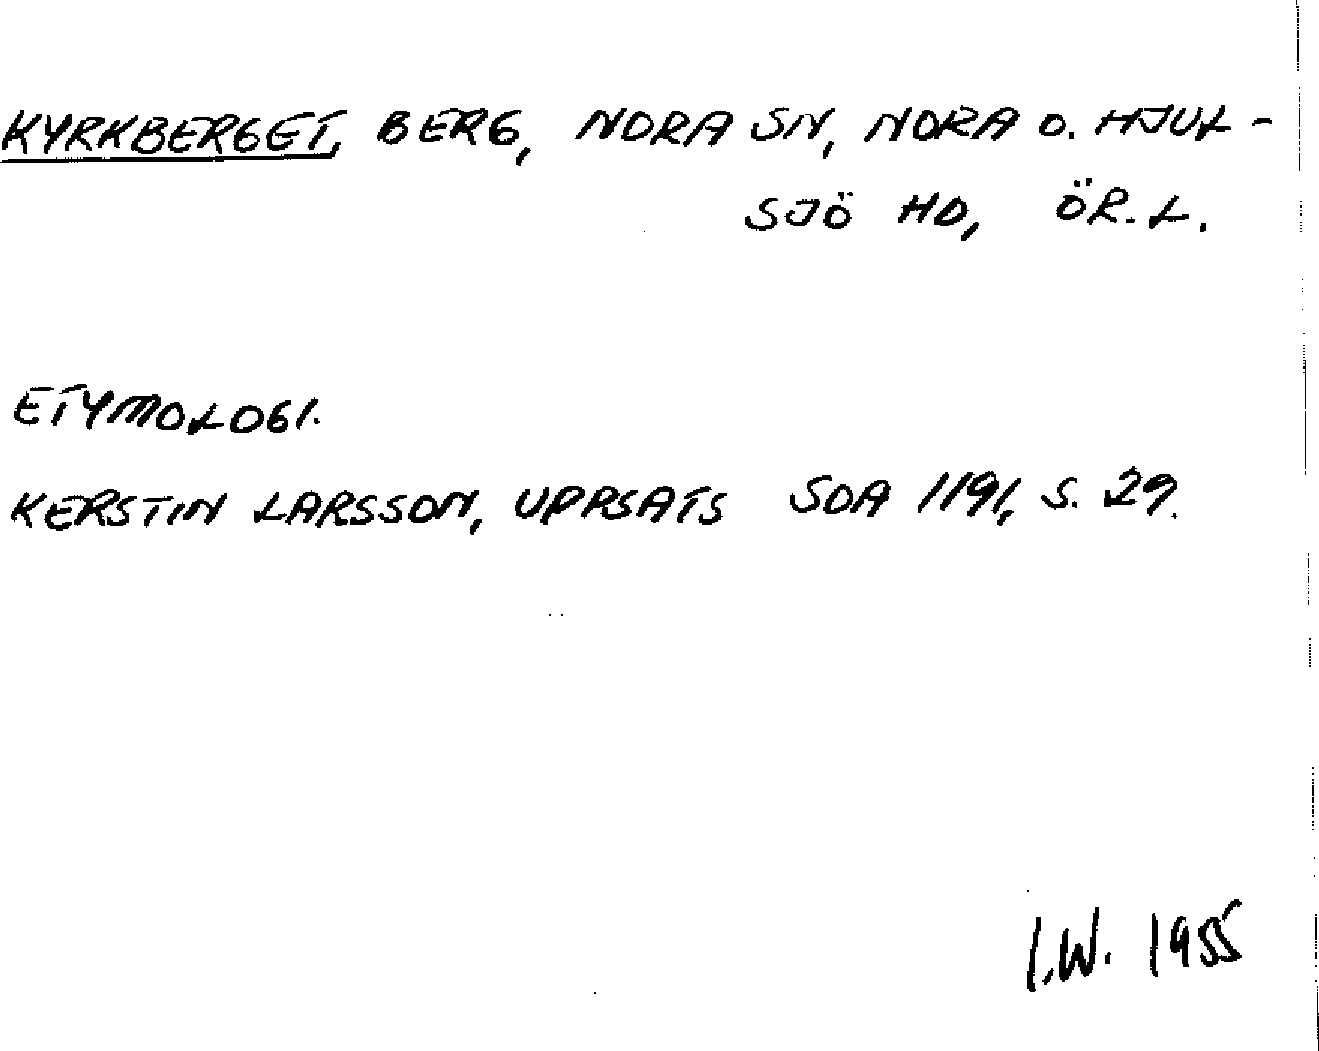 KYRKBERGET, BERG, NORA SN, NORA O. HJUL-
SJÖ HD, ÖR.L.
ETYMOLOGI.
KERSTIN LARSSON, UPPSATS SOA 1191, S. 29.
I.W. 1955